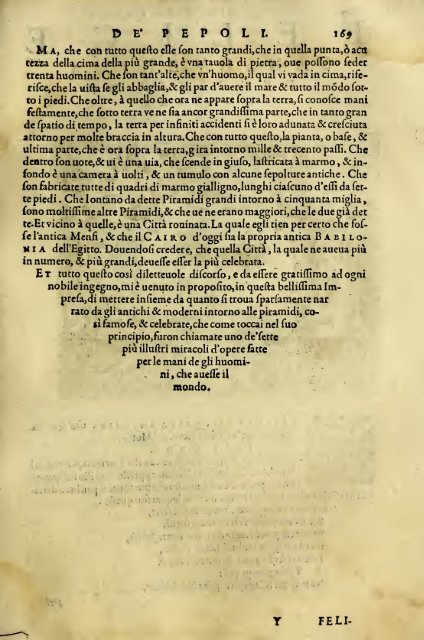 DE' PEPOLI. 169
MA, che con tutto questo esse son tanto grandi, che in quella punta, ò acu
tezza della cima della più grande, è vna tauola di pietra, oue possono seder
trenta huomini. Che son tant'alte, che vn'huomo, il qual vi vada in cima, rife-
risce, che la uista se gli abbaglia, & gli par d'auere il mare & tutto il mõdo sot-
to i piedi. Che oltre, à quello che ora ne appare sopra la terra, si conosce mani
festamente, che sotto terra ve ne sia ancor grandissima parte, che in tanto gran
de spatio di tempo, la terra per infiniti accidenti si è loro adunata & cresciuta
attorno per molte braccia in altura. Che con tutto questo, la pianta, o base, &
ultima parte, che è ora sopra la terra, gira intorno mille & trecento passi. Che
dentro son uote, & ui è una uia, che scende in giuso, lastricata à marmo, & in-
fondo è una camera à uolti, & un tumulo con alcune sepolture antiche. Che
son fabricate tutte di quadri di marmo gialligno, lunghi ciascuno d'essi da set-
te piedi. Che lontano da dette Piramidi grandi intorno à cinquanta miglia,
sono moltissime altre Piramidi, & che ue ne erano maggiori, che le due già det
te. Et vicino à quelle, è una Città rouinata. La quale egli tien per certo che fos-
se l'antica Menfi, & che il CAIRO d'oggi sia la propria antica BABILO-
NIA dell'Egitto. Douendosi credere, che quella Città, la quale ne aueua più
in numero, & più grandi, deuesse esser la più celebrata.
ET tutto questo così diletteuole discorso, e da essere gratissimo ad ogni
nobile ingegno, mi è uenuto in proposito, in questa bellissima Im-
presa, di mettere insieme da quanto si troua sparsamente nar
rato da gli antichi & moderni intorno alle piramidi, co-
sì famose, & celebrate, che come toccai nel suo
principio, furon chiamate uno de' sette
più illustri miracoli d'opere fatte
per le mani de gli huomi-
ni, che auesse il
mondo.
Y FELI-